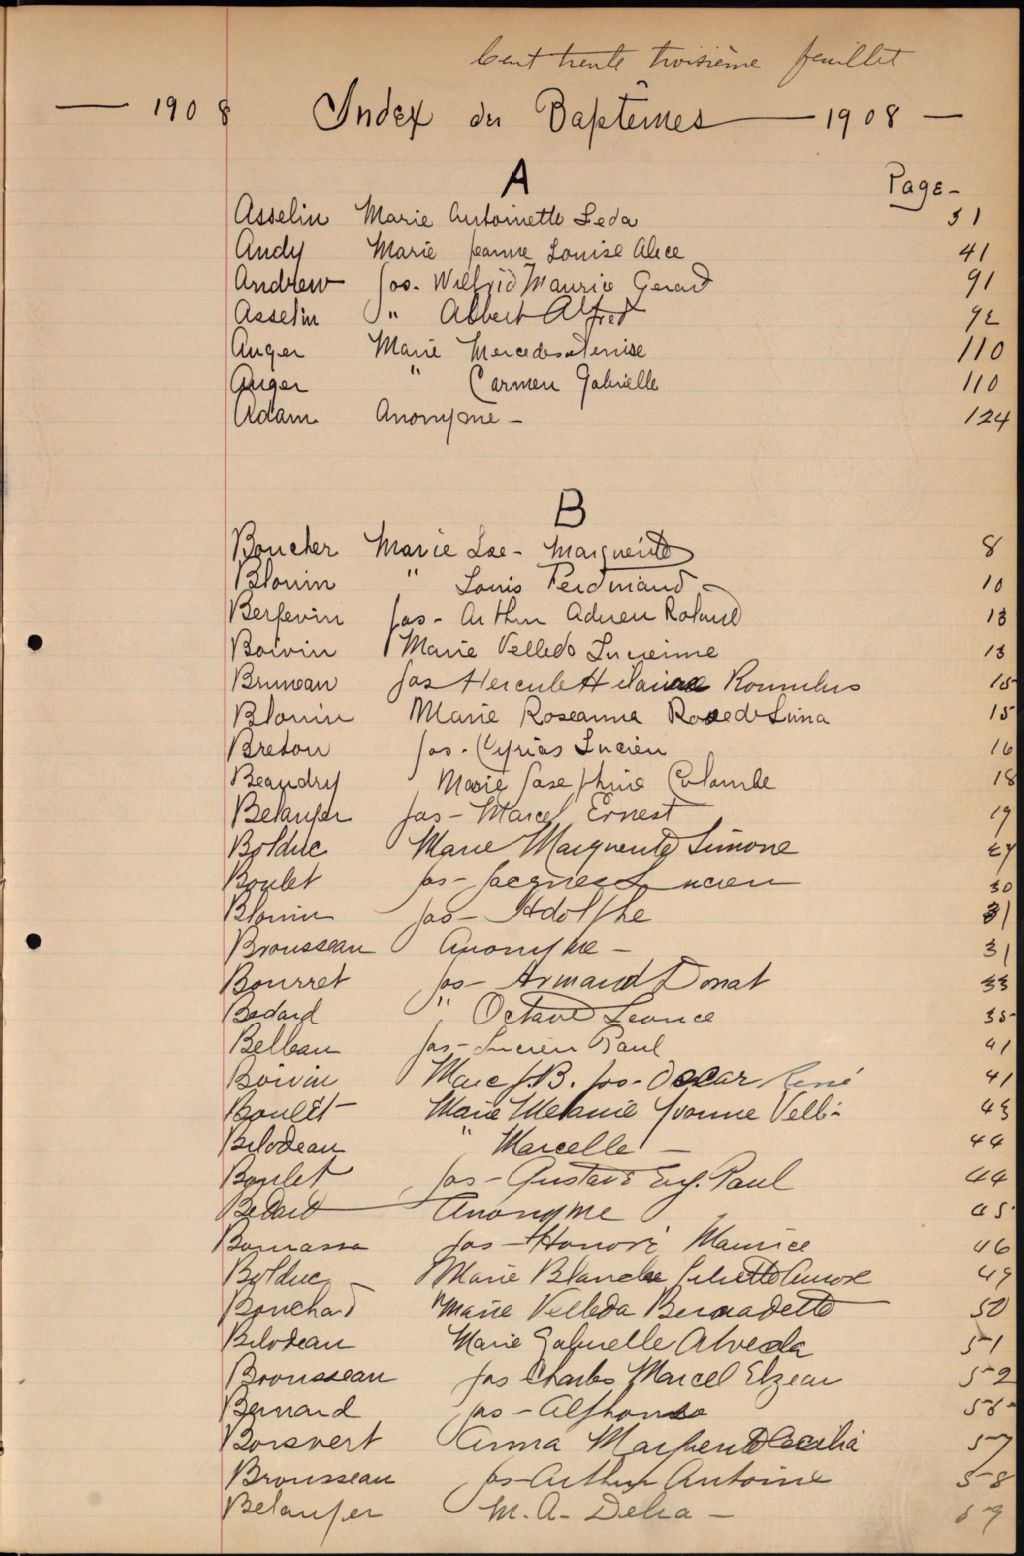 Cent trente troisième feuillet
1908 Index des Baptêmes 1908
A
Page
Asselin Marie Antoinette Leda 31
Andy Marie Jeanne Louise Alice 41
Andrew Jos. Wilfrid Maurice Gerard 91
Asselin " Albert Alfred 92
Auger Marie Mercedes Denise 110
Auger " Carmen Gabrielle 110
Adam Anonyme - 124
B
Boucher Marie Lse - Marguerite 8
Blouin " Louis Ferdinand - 10
Jos - Arthur Adrien Roland 13
Boivin Marie Velleda Lucienne 13
Bruneau Jos Hercule Romulus 15
Blouin Marie Roseanna Rose de Lima 15
Breton Jos - Cyrias Lucien 16
Beaudry Marie Josephine Colombe 18
Belanger Jos - Marcel Ernest 19
Bolduc Marie Marguerite Simone 27
Boulet Jos - Jacques Lucien 30
Blouin Jos - Adolphe 31
Brousseau Anonyme - 31
Bourret Jos - Armand Donat 33
Bedard " Octave Leonce 35
Belleau Jos - Lucien Paul 41
Boivin Marc J.B. Jos - Oscar René 41
Boulet - Marie Melanie Yvonne 43
Bilodeau " Marcelle - 44
Boulet Jos - Gustave Eug. Paul 44
Anonyme 45
Jos - Honoré Maurice 46
Bolduc - Marie Blanche Juliette 49
Bouchard Marie Velleda Bernadette 50
Bilodeau Marie Gabrielle Alveda 51
Brousseau Jos Charles Marcel Elzear 52
Bernard Jos - Alphonse 56
Boisvert Anna Marguerite Cecilia 57
Brousseau Jos - Arthur Antoine 58
Belanger M. A. - Delia - 59